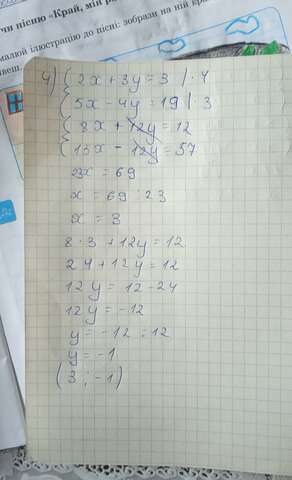 чи пісню «Край, мій р
малюй ілюстрацію до пісні: зобрази на ній кра
4) { 2x + 3y = 3 | · 4
{ 5x - 4y = 19 | · 3
{ 8x + 12y = 12
{ 15x - 12y = 57
23x = 69
x = 69 : 23
x = 3
8 · 3 + 12y = 12
24 + 12y = 12
12y = 12 - 24
12y = -12
y = -12 : 12
y = -1
(3 ; -1)